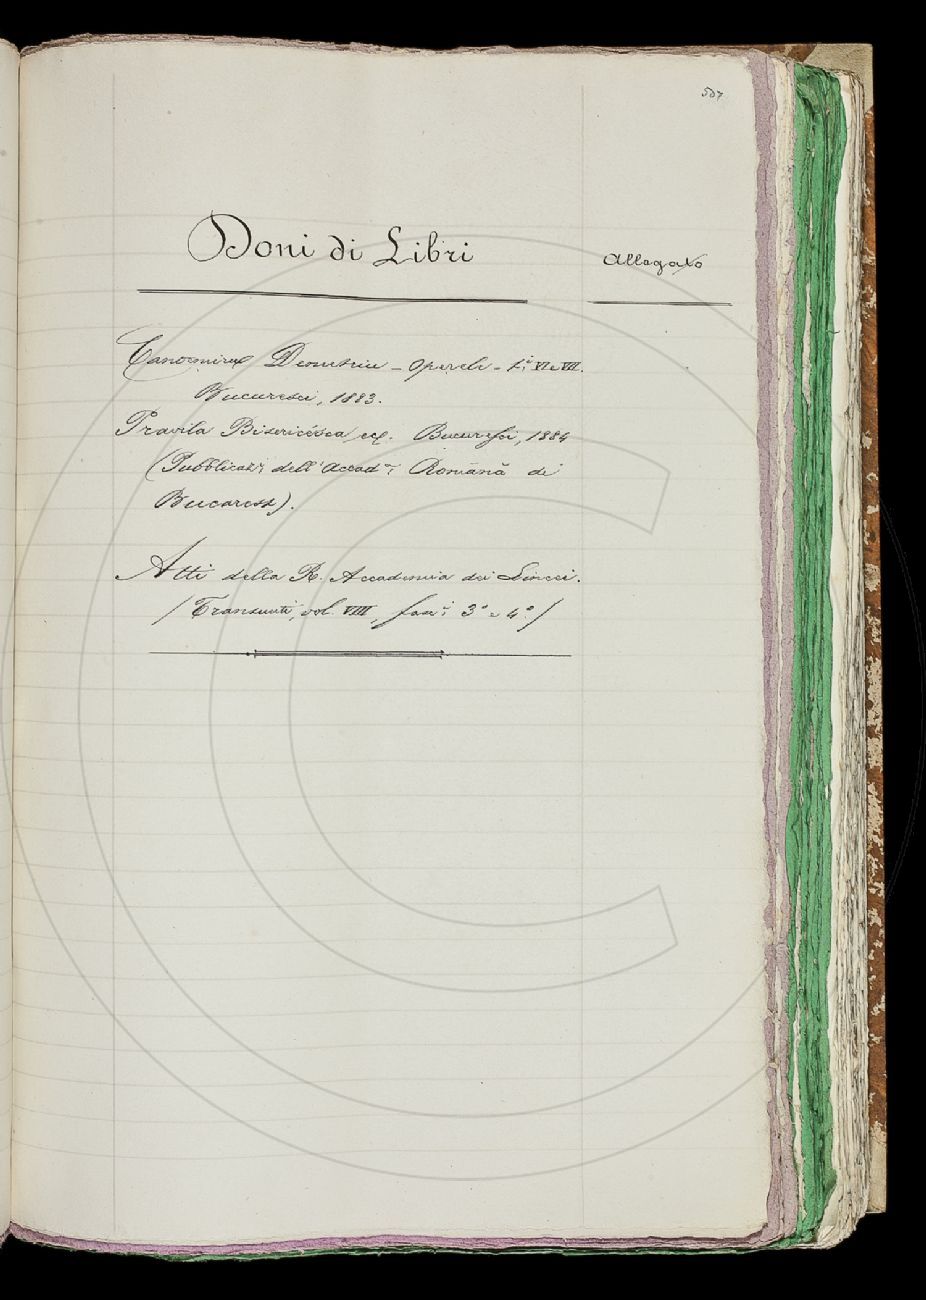 507
Doni di Libri
Allegato
Demetriu - Operele - t.i VI e VII.
Bucuresci, 1883.
Pravila Bisericésca, ecc. Bucuresci, 1884
(Pubblicaz.i dell'Accad.a Română di
Bucarest).
Atti della R. Accademia dei Lincei.
(Transunti, vol. VIII, fasc.i 3° e 4°.)